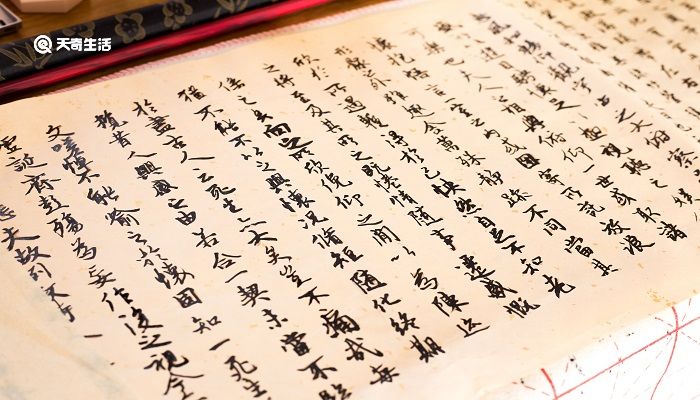 天奇生活
風和暢仰觀宇宙之大俯察
遊目騁懷足以極視聽之
可樂也夫人之相與俯仰一世或取諸
懷抱悟言一室之內或因寄所託放浪
形骸之外雖趣舍萬殊靜躁不同當其
欣於所遇暫得於己快然自足不知老
之將至及其所之既惓情隨事遷感慨
係之矣向之所欣俛仰之間以為陳迹
猶不能不以之興懷況脩短隨化終期
於盡古人云死生亦大矣豈不痛哉每
攬昔人興感之由若合一契未嘗不臨
文嗟悼不能喻之於懷固知一死生
虛誕齊彭殤為妄作後之視今
悲夫故列敘時人